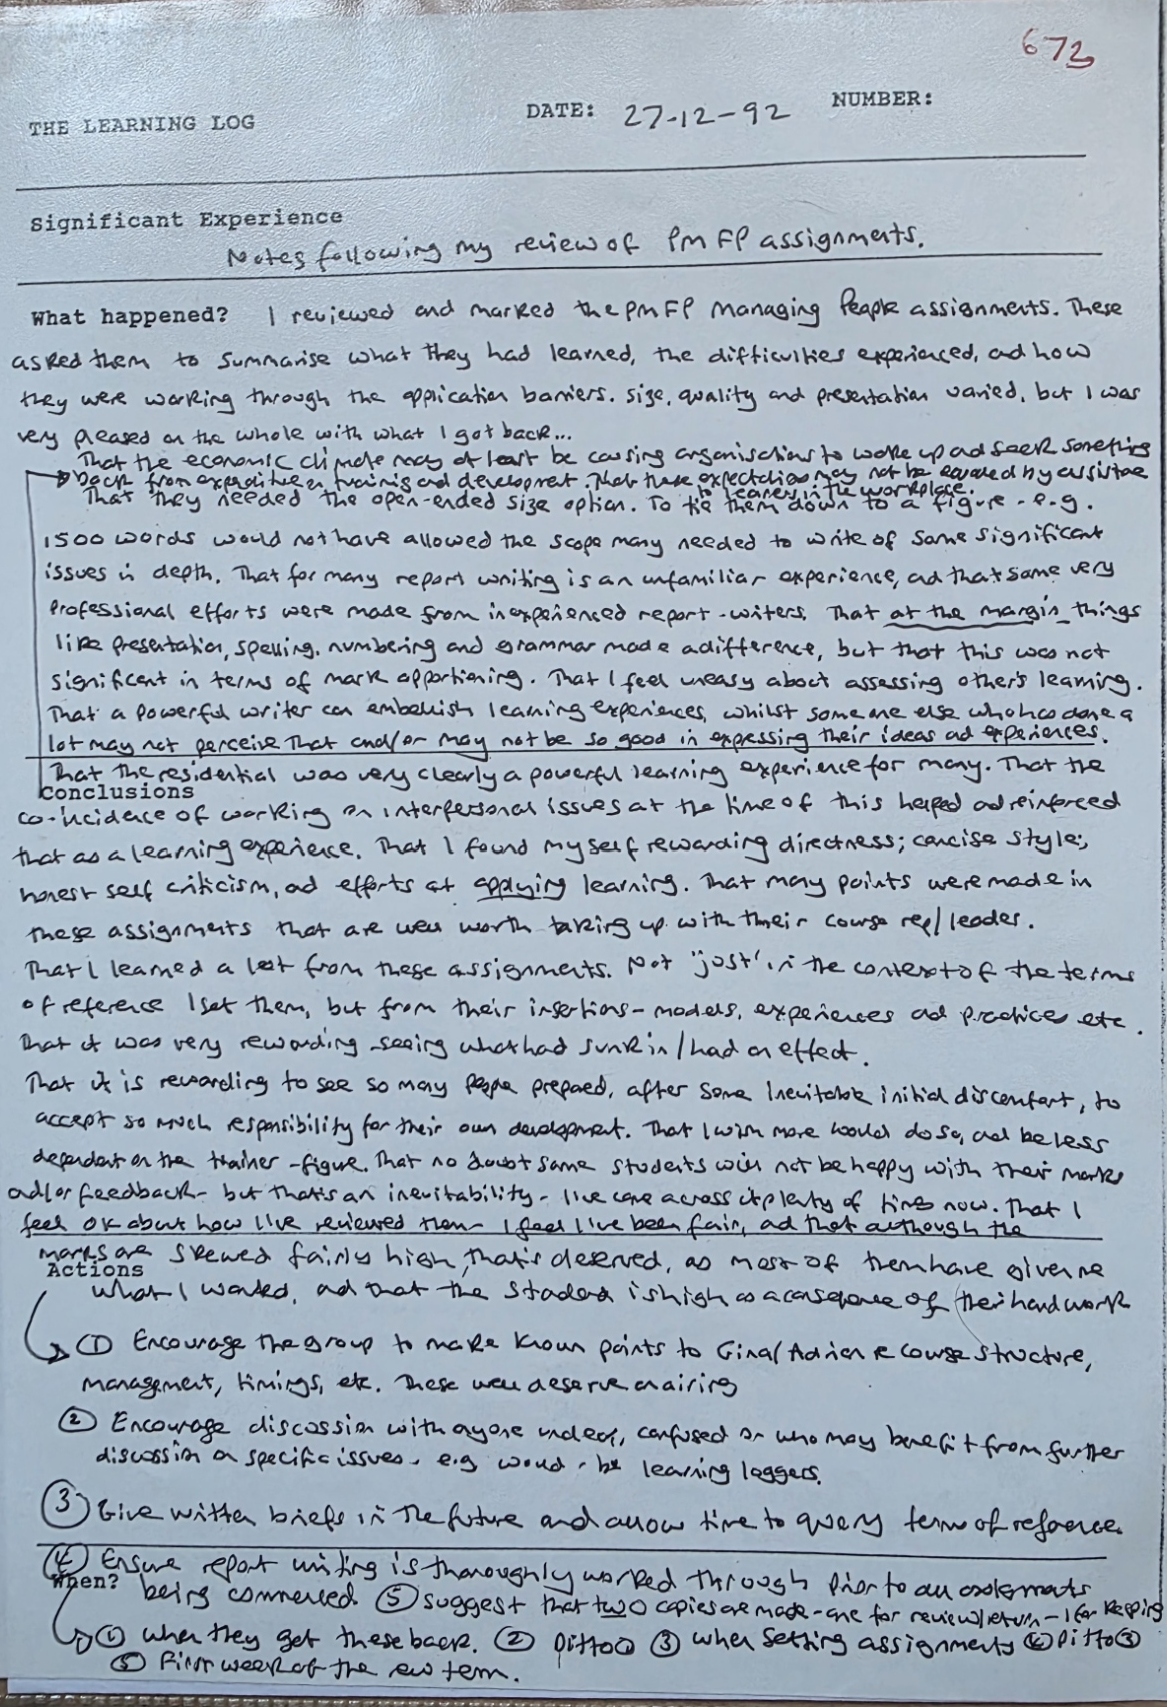 673
THE LEARNING LOG DATE: 27-12-92 NUMBER:
Significant Experience
Notes following my review of PMFP assignments.
What happened? I reviewed and marked the PMFP Managing People assignments. These
asked them to summarise what they had learned, the difficulties experienced, ad how
they were working through the application barriers. Size, quality and presentation varied, but I was
very pleased on the whole with what I got back...
That the economic climate may at least be causing organisations to wake up ad seek something
back from expenditure on training ad development. That these expectations may not be equaled by assistance
to learners in the workplace.
That they needed the open-ended size option. To tie them down to a figure - e.g.
1500 words would not have allowed the scope many needed to write of some significant
issues in depth. That for many report writing is an unfamiliar experience, ad that some very
professional efforts were made from inexperienced report-writers. That at the margin things
like presentation, spelling, numbering and grammar made a difference, but that this was not
significant in terms of mark apportioning. That I feel uneasy about assessing other's learning.
That a powerful writer can embellish learning experiences, whilst someone else who has done a
lot may not perceive that and/or may not be so good in expressing their ideas ad experiences.
That the residential was very clearly a powerful learning experience for many. That the
Conclusions
co-incidence of working on interpersonal issues at the time of this helped ad reinforced
that as a learning experience. That I found myself rewarding directness; concise style;
honest self criticism, ad efforts at applying learning. That many points were made in
these assignments that are well worth taking up with their course rep/leader.
That I learned a lot from these assignments. Not 'just' in the context of the terms
of reference I set them, but from their insertions - models, experiences ad practices etc.
That it was very rewarding seeing what had sunk in/had an effect.
That it is rewarding to see so many people prepared, after some inevitable initial discomfort, to
accept so much responsibility for their own development. That I wish more would do so, and be less
dependent on the trainer-figure. That no doubt some students will not be happy with their marks
ad/or feedback - but that's an inevitability - I've come across it plenty of times now. That I
feel OK about how I've reviewed them - I feel I've been fair, ad that although the
marks are skewed fairly high, that's deserved, as most of them have given me
Actions
what I wanted, ad that the standard is high as a consequence of their hard work
① Encourage the group to make known points to Gina/Adrian re course structure,
management, timings, etc. These well deserve an airing
② Encourage discussion with anyone unclear, confused or who may benefit from further
discussion on specific issues. e.g would-be learning loggers.
③ Give written briefs in the future and allow time to query terms of reference.
④ Ensure report writing is thoroughly worked through prior to an assignments
When?
being commenced. ⑤ suggest that two copies are made - one for review/return - 1 for keeping
① when they get these back. ② Ditto① ③ when setting assignments ④ Ditto③
⑤ First week of the new term.